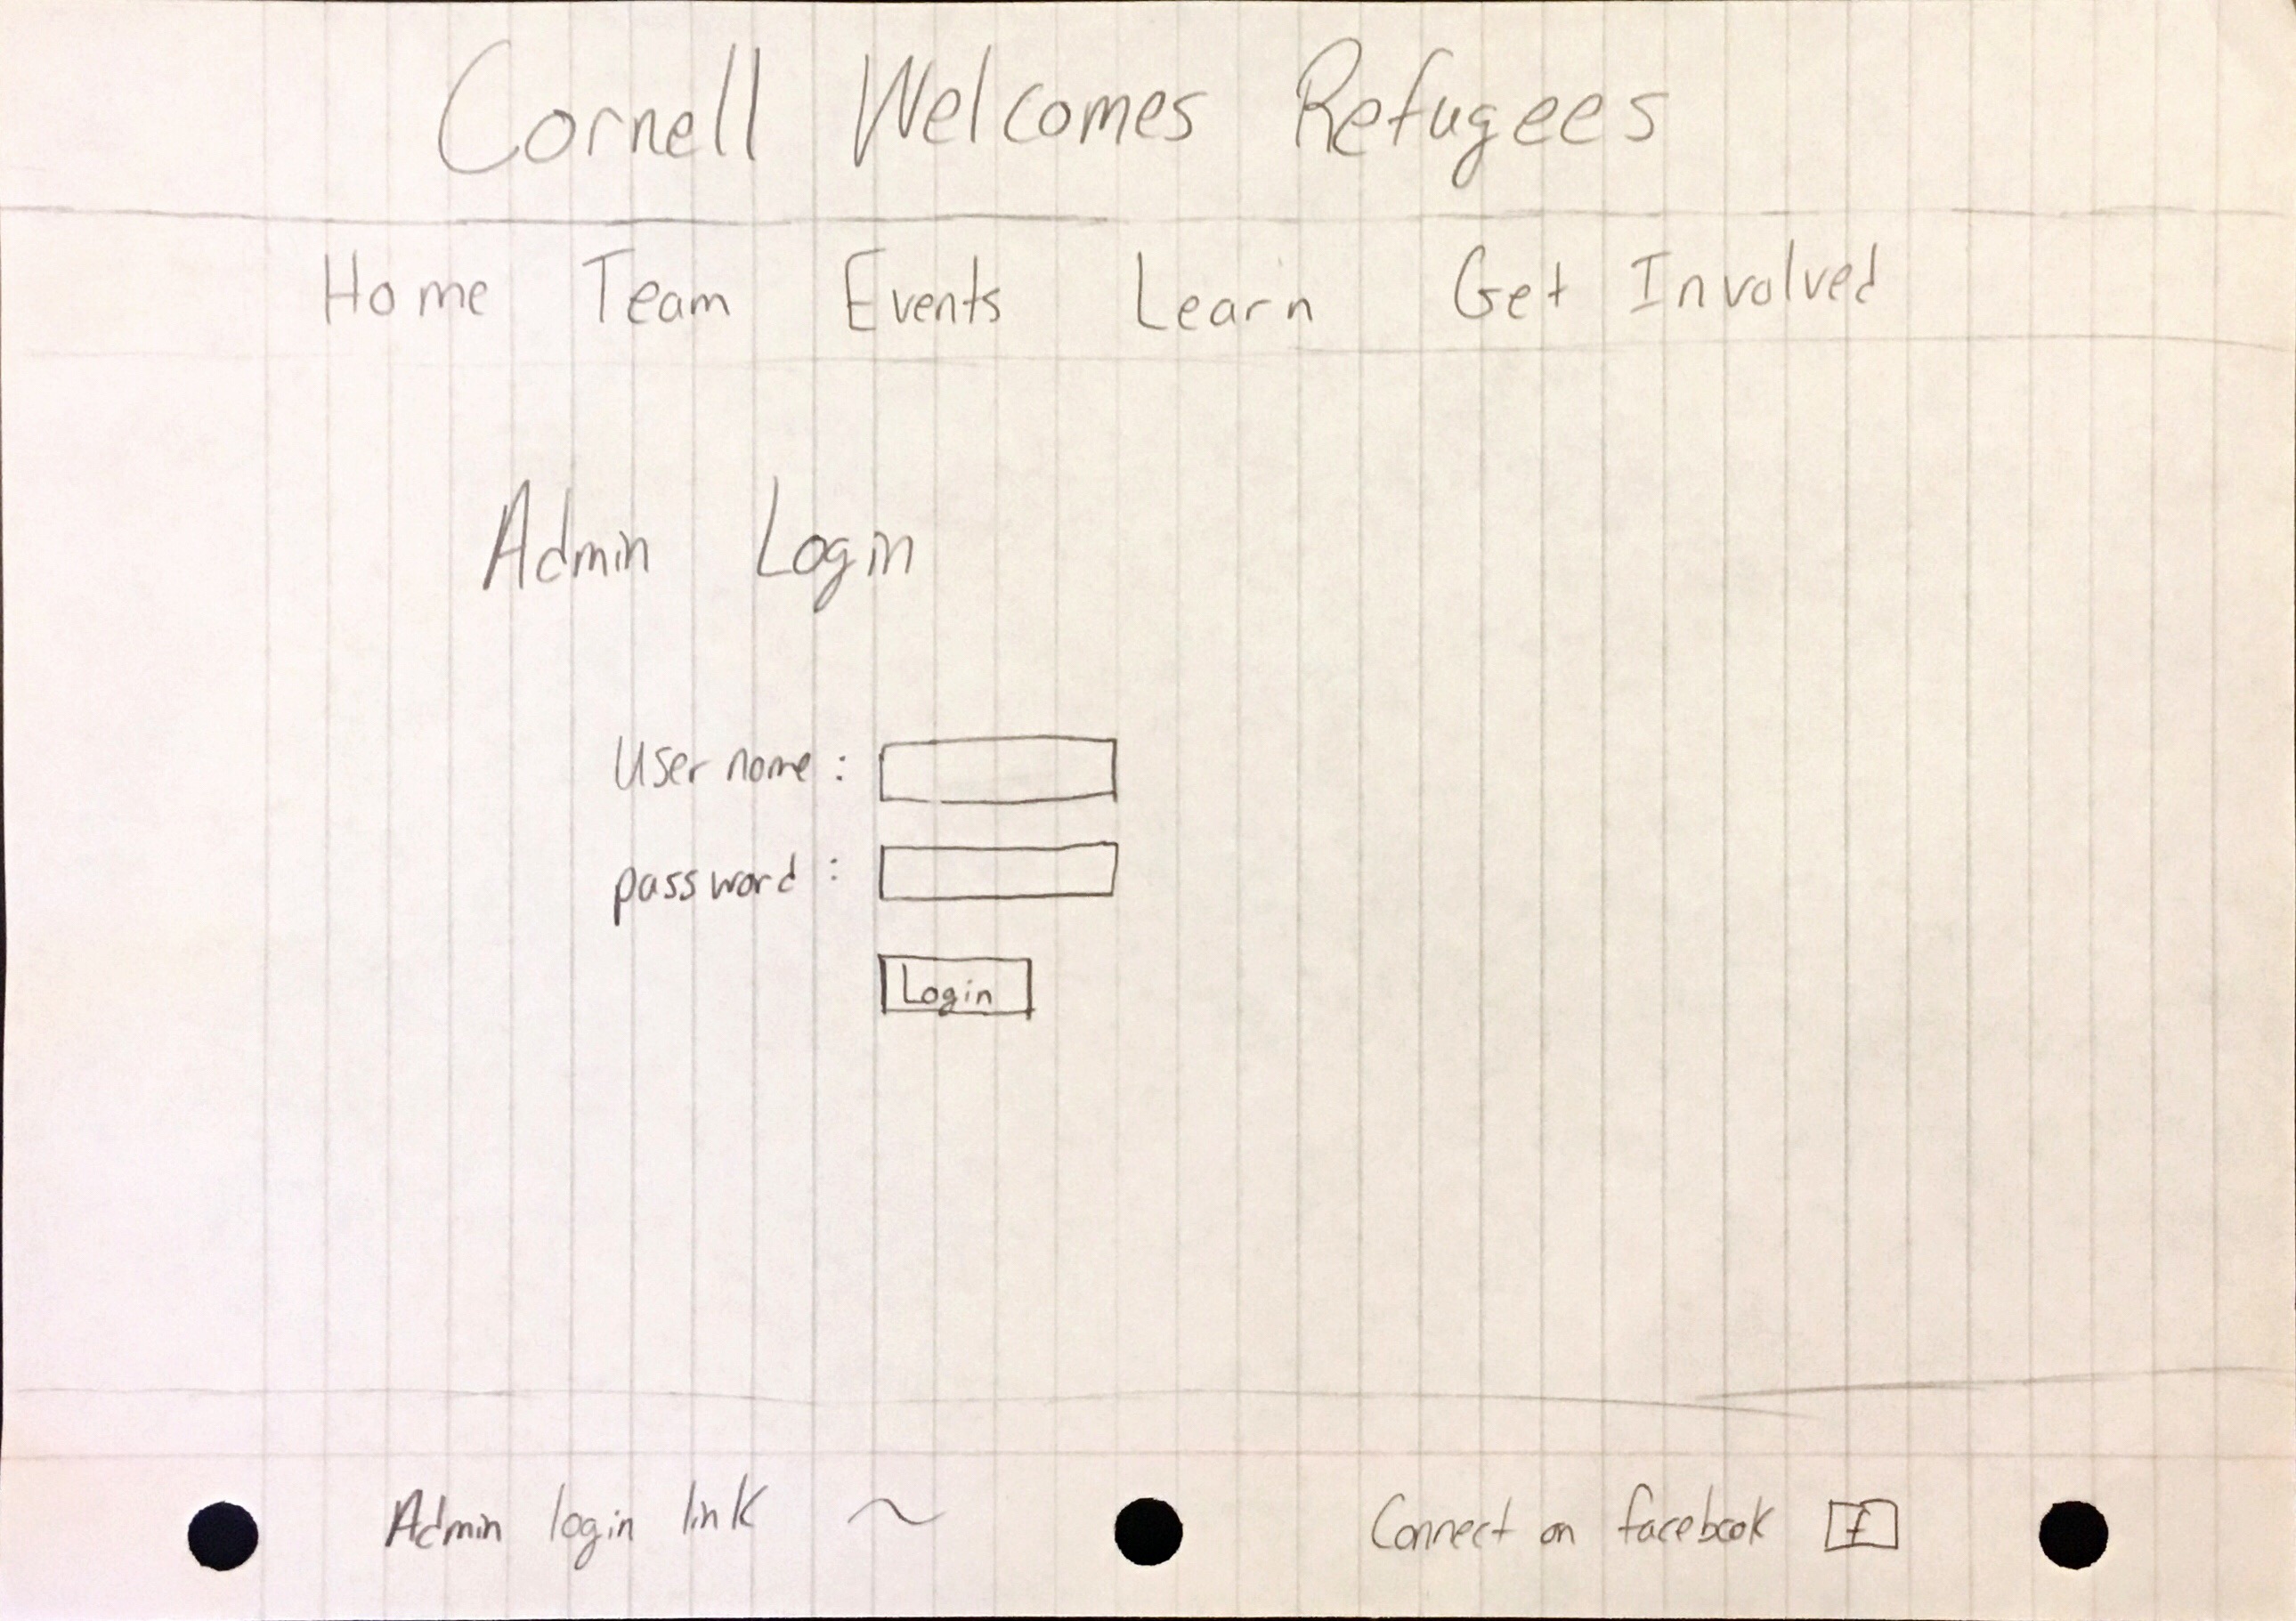 Cornell Welcomes Refugees
Home Team Events Learn Get Involved
Admin Login
User name :
password :
Login
Admin login link ~
Connect on facebook f